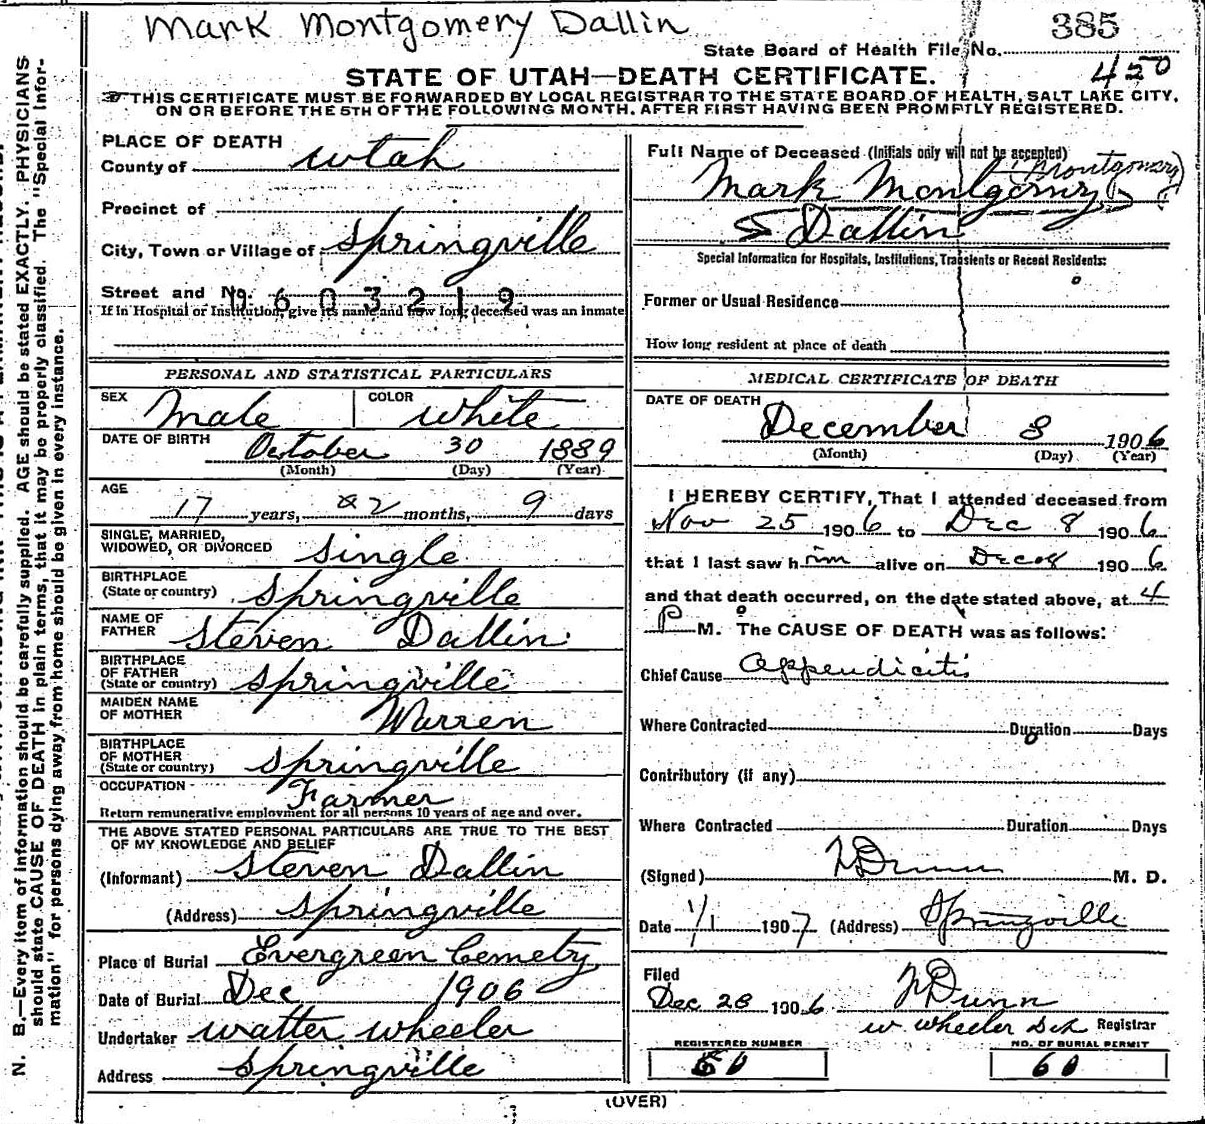 Mark Montgomery Dallin
385
State Board of Health File No.
450
STATE OF UTAH—DEATH CERTIFICATE.
THIS CERTIFICATE MUST BE FORWARDED BY LOCAL REGISTRAR TO THE STATE BOARD OF HEALTH, SALT LAKE CITY,
ON OR BEFORE THE 5TH OF THE FOLLOWING MONTH, AFTER FIRST HAVING BEEN PROMPTLY REGISTERED.
PLACE OF DEATH
County of Utah
Precinct of
City, Town or Village of Springville
Street and No.
603219
If in Hospital or Institution, give its name and how long deceased was an inmate
PERSONAL AND STATISTICAL PARTICULARS
SEX Male COLOR White
DATE OF BIRTH October 30 1889
(Month) (Day) (Year)
AGE
17 years, 2 months, 9 days
SINGLE, MARRIED,
WIDOWED, OR DIVORCED Single
BIRTHPLACE
(State or country) Springville
NAME OF
FATHER Steven Dallin
BIRTHPLACE
OF FATHER
(State or country) Springville
MAIDEN NAME
OF MOTHER Warren
BIRTHPLACE
OF MOTHER
(State or country) Springville
OCCUPATION Farmer
Return remunerative employment for all persons 10 years of age and over.
THE ABOVE STATED PERSONAL PARTICULARS ARE TRUE TO THE BEST
OF MY KNOWLEDGE AND BELIEF
(Informant) Steven Dallin
(Address) Springville
Place of Burial Evergreen Cemetry
Date of Burial Dec 1906
Undertaker Walter Wheeler
Address Springville
Full Name of Deceased (Initials only will not be accepted)
(Montgomery)
Mark Montgomry
Dallin
Special Information for Hospitals, Institutions, Transients or Recent Residents:
Former or Usual Residence
How long resident at place of death
MEDICAL CERTIFICATE OF DEATH
DATE OF DEATH
December 8 1906
(Month) (Day) (Year)
I HEREBY CERTIFY, That I attended deceased from
Nov 25 1906 to Dec 8 1906
that I last saw him alive on Dec 8 1906
and that death occurred, on the date stated above, at 4
P M. The CAUSE OF DEATH was as follows:
Chief Cause Appendicitis
Where Contracted Duration Days
Contributory (if any)
Where Contracted Duration Days
(Signed) Dunn M. D.
Date 1/1 1907 (Address) Springville
Filed
Dec 28 1906 Dunn
W Wheeler Registrar
REGISTERED NUMBER NO. OF BURIAL PERMIT
60 60
(OVER)
N. B.—Every item of information should be carefully supplied. AGE should be stated EXACTLY. PHYSICIANS
should state CAUSE OF DEATH in plain terms, that it may be properly classified. The "Special Infor-
mation" for persons dying away from home should be given in every instance.